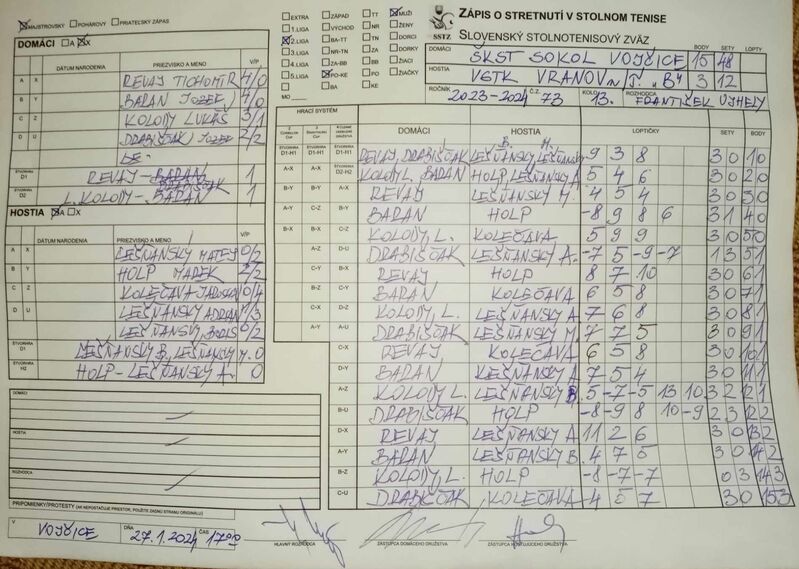 MAJSTROVSKÝ POHÁROVÝ PRIATEĽSKÝ ZÁPAS
DOMÁCI A X
DÁTUM NARODENIA PRIEZVISKO A MENO V/P
A X REVAY TICHOMÍR 4/0
B Y BARAN JOZEF 4/0
C Z KOLODY LUKÁŠ 3/1
D U DRABIŠČAK JOZEF 2/2
ŠTVORHRA D1 REVAY - 1
ŠTVORHRA D2 L. KOLODY - BARAN 1
HOSTIA A X
DÁTUM NARODENIA PRIEZVISKO A MENO V/P
A X LEŠŇANSKY MATEJ 0/2
B Y HOLP MAREK 2/2
C Z KOLEČAVA 0/4
D U LEŠŇANSKY ADRIAN 1/3
LEŠŇANSKY BORIS 0/2
ŠTVORHRA D1 LEŠŇANSKY B, LEŠŇANSKY M. 0
ŠTVORHRA H2 HOLP - LEŠŇANSKY A. 0
DOMÁCI
HOSTIA
ROZHODCA
PRIPOMIENKY/PROTESTY (AK NEPOSTAČUJE PRIESTOR, POUŽITE ZADNÚ STRANU ORIGINÁLU)
V VOJČICE DŇA 27.1.2024 ČAS 17:00
EXTRA ZÁPAD TT MUŽI
1.LIGA VÝCHOD NR ŽENY
2.LIGA BA-TT TN DORCI
3.LIGA NR-TN ZA DORKY
4.LIGA ZA-BB BB ŽIACI
5.LIGA PO-KE PO ŽIAČKY
BA KE
MO
SSTZ
ZÁPIS O STRETNUTÍ V STOLNOM TENISE
SLOVENSKÝ STOLNOTENISOVÝ ZVÄZ
BODY SETY LOPTY
DOMÁCI ŠKST SOKOL VOJČICE 15 48
HOSTIA VSTK VRANOV n/T. "B" 3 12
ROČNÍK 2023-2024 Č.Z. 73 KOLO 13. ROZHODCA FRANTIŠEK UJHELY
HRACÍ SYSTÉM
DOMÁCI HOSTIA LOPTIČKY SETY BODY
ŠTVORHRA D1-H1 ŠTVORHRA D1-H1 REVAY, DRABIŠČAK LEŠŇANSKY LEŠŇANSKY 9 3 8 3 0 1 0
A-X A-X ŠTVORHRA D2-H2 KOLODY L. BARAN HOLP, LEŠŇANSKY A 5 4 6 3 0 2 0
B-Y B-Y A-X REVAY LEŠŇANSKY M 4 5 4 3 0 3 0
A-Y C-Z B-Y BARAN HOLP -8 9 8 6 3 1 4 0
B-X B-X C-Z KOLODY, L. KOLEČAVA 5 9 9 3 0 5 0
A-Z D-U DRABIŠČAK LEŠŇANSKY A. -7 5 -9 -7 1 3 5 1
C-Y B-X REVAY HOLP 8 7 10 3 0 6 1
B-Z C-Y BARAN KOLEČAVA 6 5 8 3 0 7 1
C-X D-Z KOLODY, L. LEŠŇANSKY A 7 6 8 3 0 8 1
A-Y A-U DRABIŠČAK LEŠŇANSKY M. 7 7 5 3 0 9 1
C-X REVAY KOLEČAVA 6 5 8 3 0 10 1
D-Y BARAN LEŠŇANSKY A 7 5 4 3 0 11 1
A-Z KOLODY L. LEŠŇANSKY B. 5 -7 -5 13 10 3 2 12 1
B-U DRABIŠČAK HOLP -8 -9 8 10 -9 2 3 12 2
D-X REVAY LEŠŇANSKY A. 11 2 6 3 0 13 2
A-Y BARAN LEŠŇANSKY B. 4 7 5 3 0 14 2
B-Z KOLODY, L. HOLP -8 -7 -7 0 3 14 3
C-U DRABIŠČAK KOLEČAVA 4 5 7 3 0 15 3
HLAVNÝ ROZHODCA ZÁSTUPCA DOMÁCEHO DRUŽSTVA ZÁSTUPCA HOSŤUJÚCEHO DRUŽSTVA